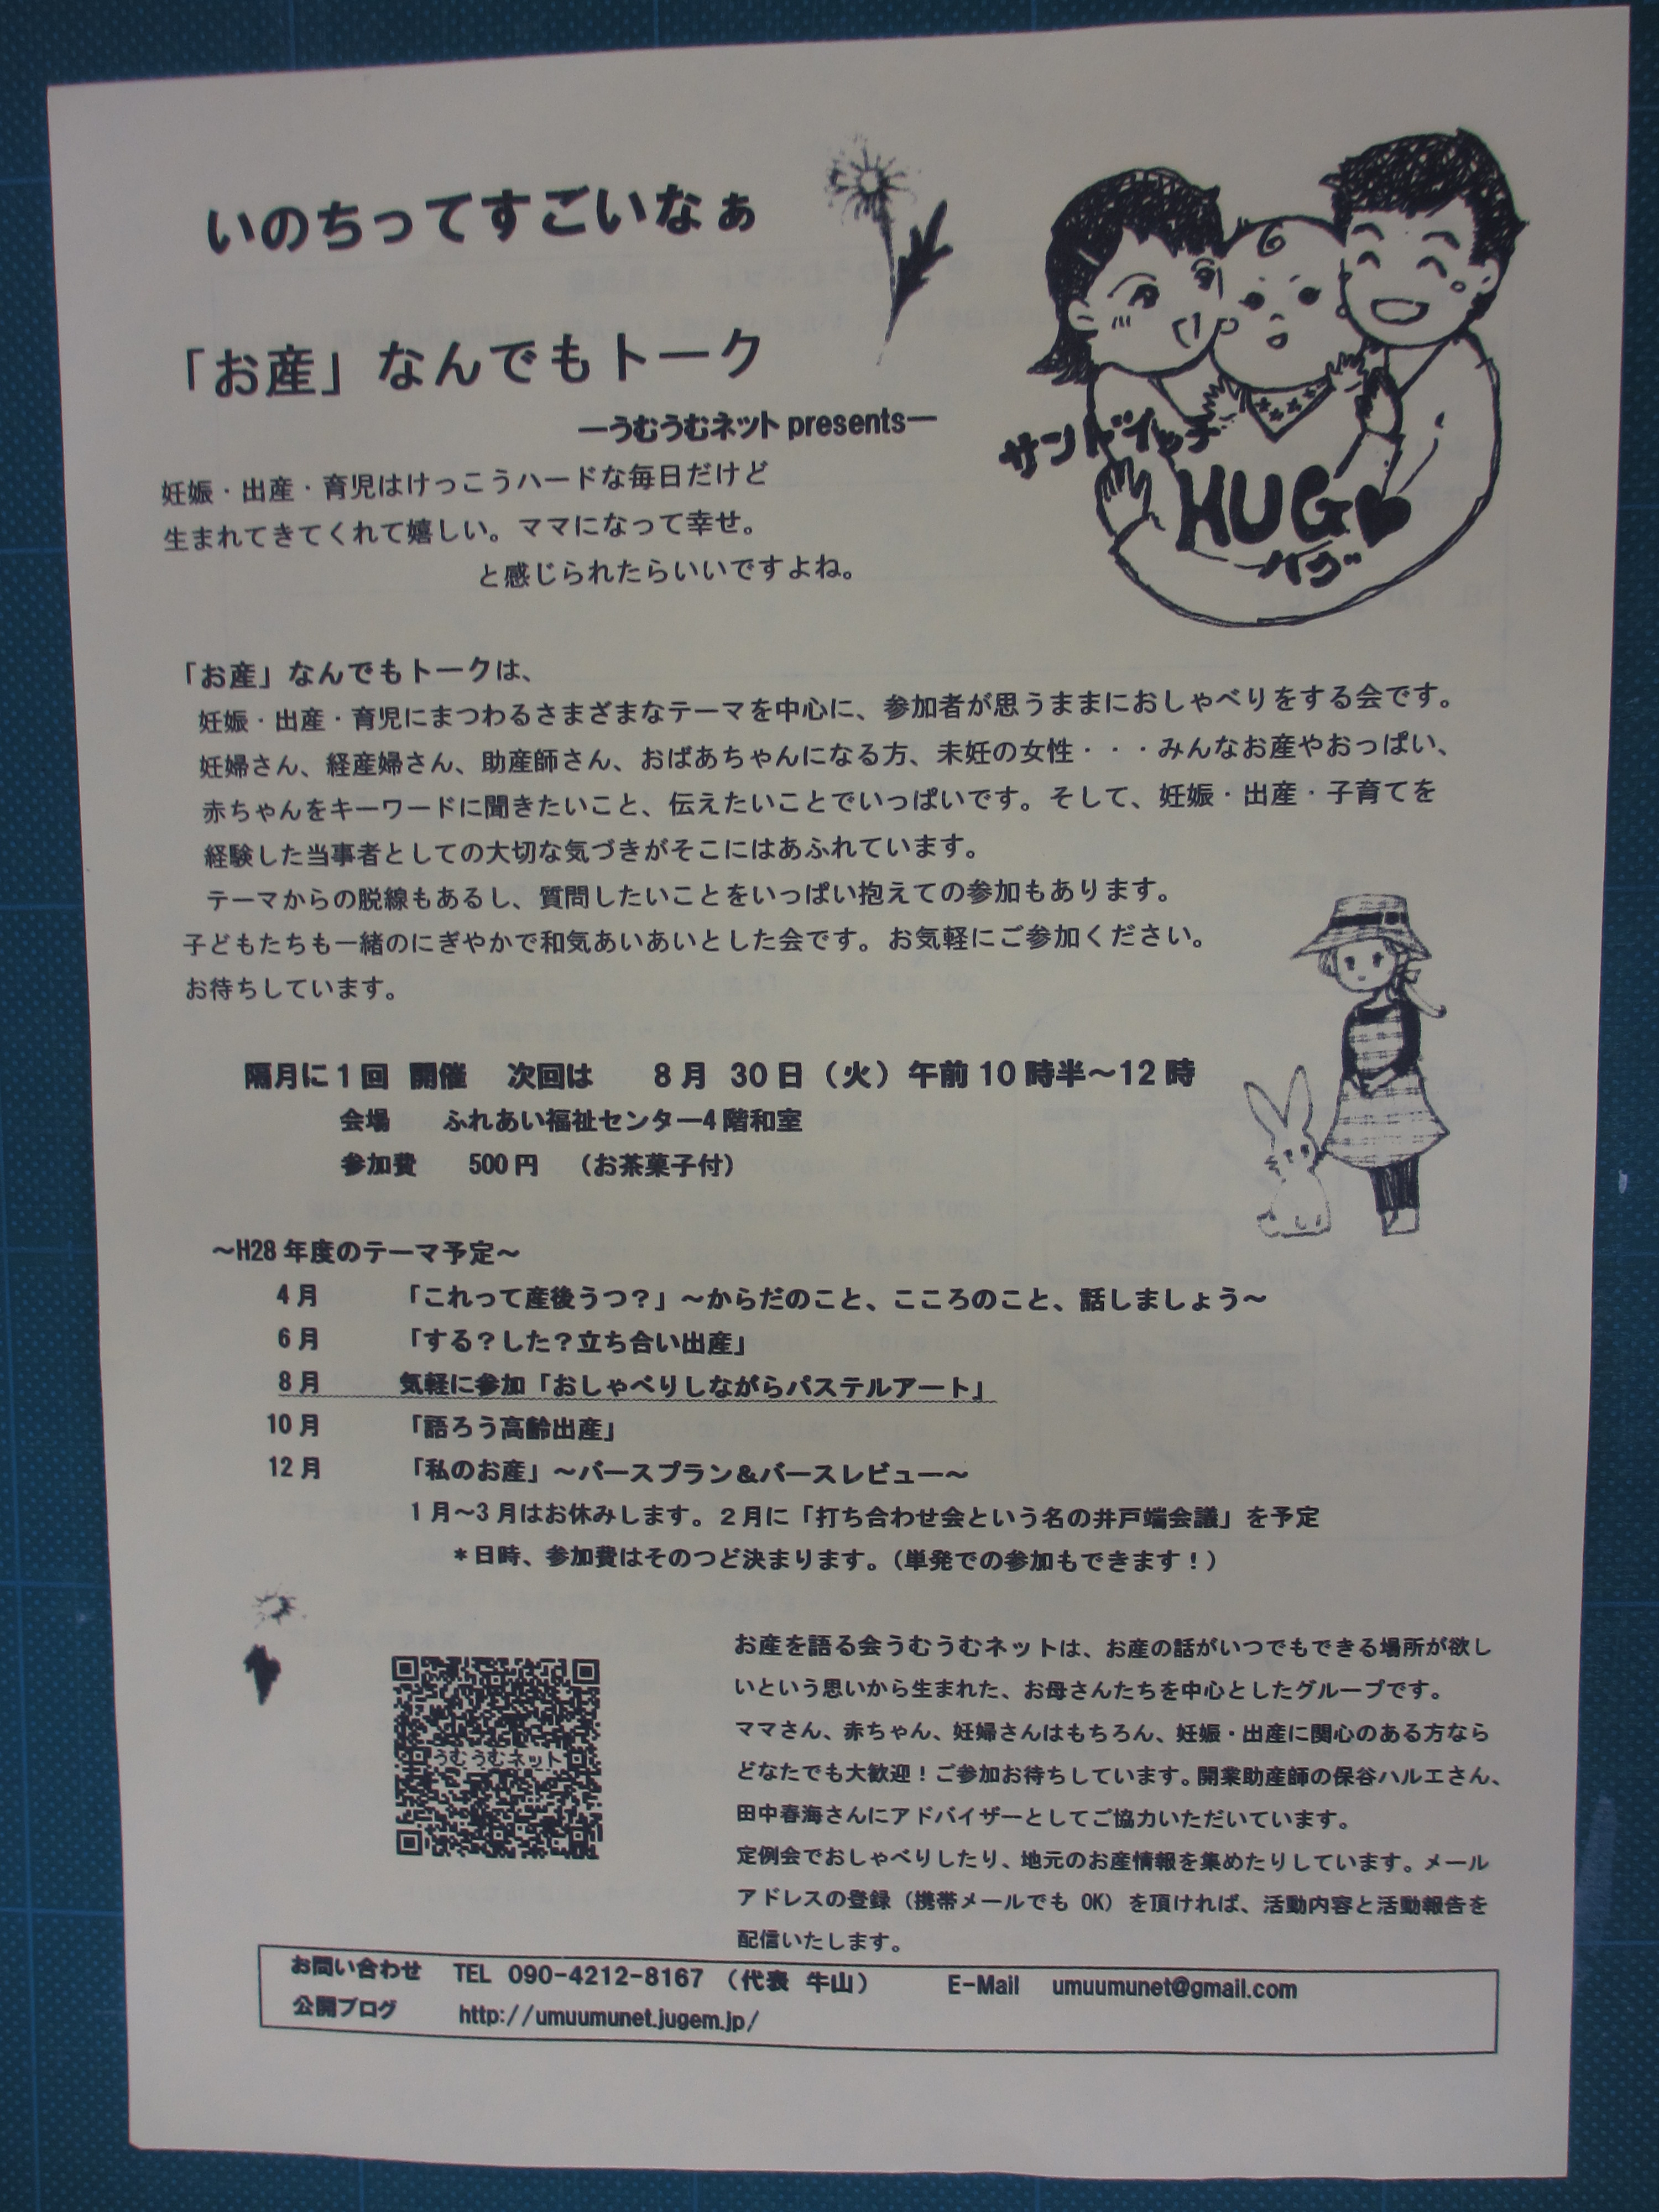 いのちってすごいなぁ
「お産」なんでもトーク
―うむうむネット presents―
サンドイッチ
HUG
ハグ
妊娠・出産・育児はけっこうハードな毎日だけど
生まれてきてくれて嬉しい。ママになって幸せ。
と感じられたらいいですよね。
「お産」なんでもトークは、
妊娠・出産・育児にまつわるさまざまなテーマを中心に、参加者が思うままにおしゃべりをする会です。
妊婦さん、経産婦さん、助産師さん、おばあちゃんになる方、未妊の女性・・・みんなお産やおっぱい、
赤ちゃんをキーワードに聞きたいこと、伝えたいことでいっぱいです。そして、妊娠・出産・子育てを
経験した当事者としての大切な気づきがそこにはあふれています。
テーマからの脱線もあるし、質問したいことをいっぱい抱えての参加もあります。
子どもたちも一緒のにぎやかで和気あいあいとした会です。お気軽にご参加ください。
お待ちしています。
隔月に1回 開催 次回は 8月 30日（火）午前10時半～12時
会場 ふれあい福祉センター4階和室
参加費 500円 （お茶菓子付）
～H28年度のテーマ予定～
4月 「これって産後うつ？」～からだのこと、こころのこと、話しましょう～
6月 「する？した？立ち合い出産」
8月 気軽に参加「おしゃべりしながらパステルアート」
10月 「語ろう高齢出産」
12月 「私のお産」～バースプラン＆バースレビュー～
1月～3月はお休みします。2月に「打ち合わせ会という名の井戸端会議」を予定
＊日時、参加費はそのつど決まります。（単発での参加もできます！）
うむうむネット
お産を語る会うむうむネットは、お産の話がいつでもできる場所が欲し
いという思いから生まれた、お母さんたちを中心としたグループです。
ママさん、赤ちゃん、妊婦さんはもちろん、妊娠・出産に関心のある方なら
どなたでも大歓迎！ご参加お待ちしています。開業助産師の保谷ハルエさん、
田中春海さんにアドバイザーとしてご協力いただいています。
定例会でおしゃべりしたり、地元のお産情報を集めたりしています。メール
アドレスの登録（携帯メールでも OK）を頂ければ、活動内容と活動報告を
配信いたします。
お問い合わせ TEL 090-4212-8167 （代表 牛山） E-Mail umuumunet@gmail.com
公開ブログ http://umuumunet.jugem.jp/